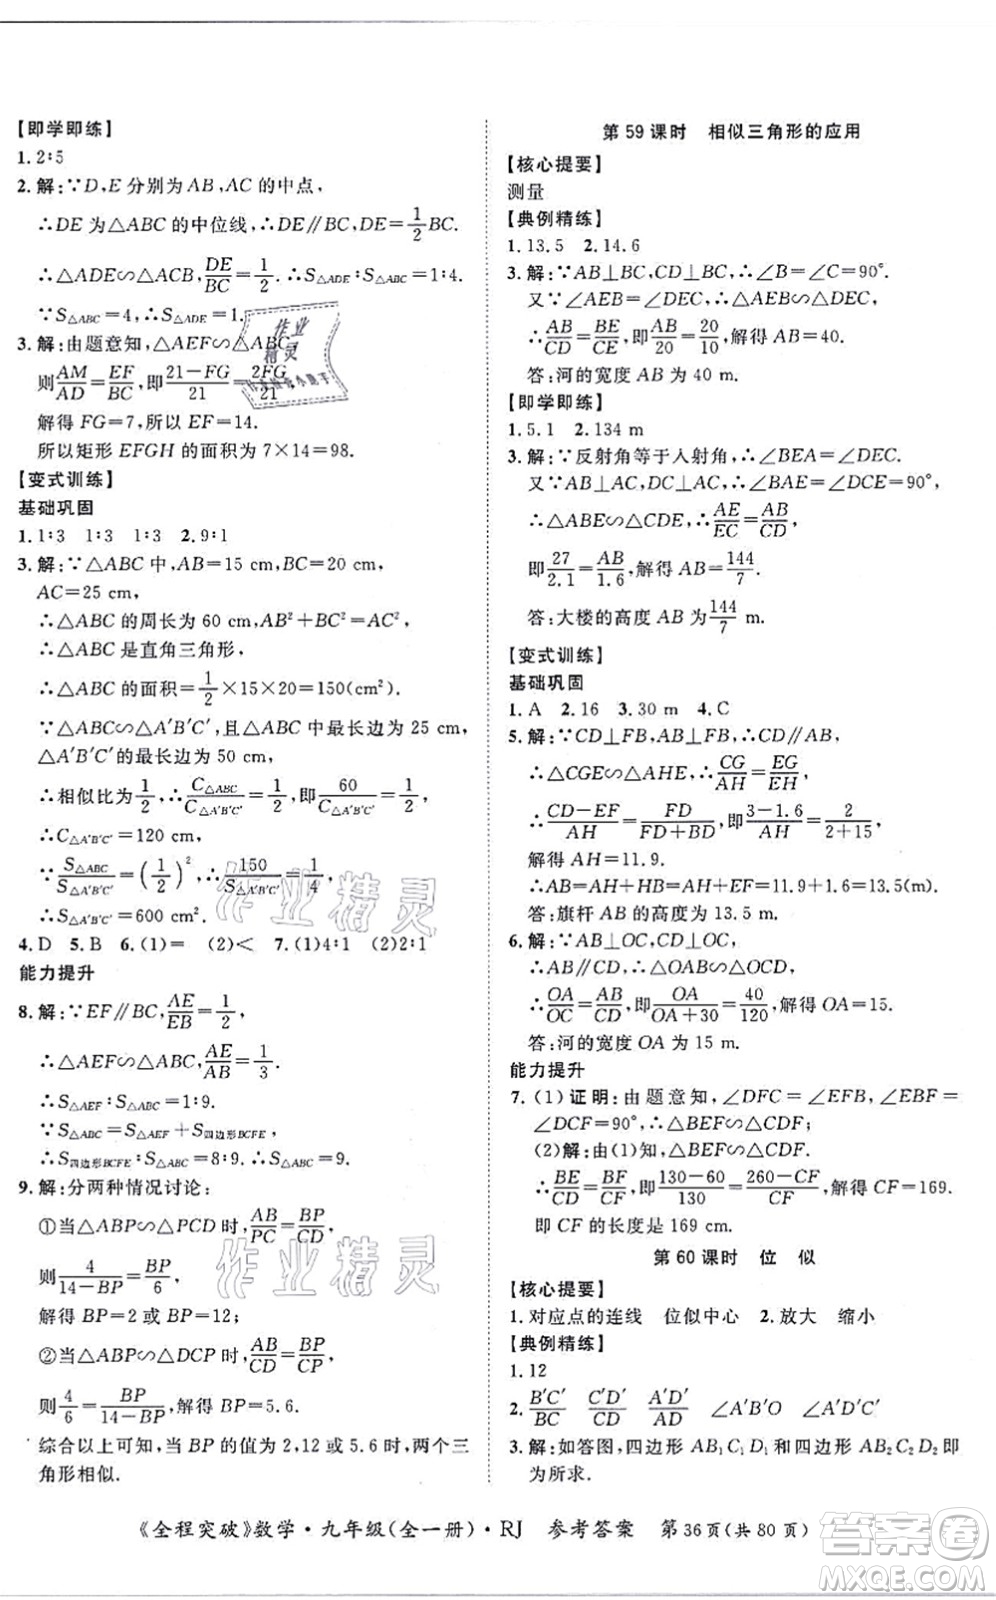 【即学即练】
1. 2∶5
2. 解:∵D,E 分别为 AB,AC 的中点,
∴DE 为△ABC 的中位线,∴DE∥BC,DE=1/2BC.
∴△ADE∽△ACB,DE/BC=1/2.∴S△ADE∶S△ABC=1∶4.
∵S△ABC=4,∴S△ADE=1.
3. 解:由题意知,△AEF∽△ABC,
则AM/AD=EF/BC,即(21-FG)/21=2FG/21
解得 FG=7,所以 EF=14.
所以矩形 EFGH 的面积为 7×14=98.
【变式训练】
基础巩固
1. 1∶3 1∶3 1∶3 2. 9∶1
3. 解:∵△ABC 中,AB=15 cm,BC=20 cm,
AC=25 cm,
∴△ABC 的周长为 60 cm,AB²+BC²=AC²,
∴△ABC 是直角三角形,
∴△ABC 的面积=1/2×15×20=150(cm²).
∵△ABC∽△A′B′C′,且△ABC 中最长边为 25 cm,
△A′B′C′的最长边为 50 cm,
∴相似比为1/2,∴C△ABC/C△A′B′C′=1/2,即60/C△A′B′C′=1/2,
∴C△A′B′C′=120 cm,
∵S△ABC/S△A′B′C′=(1/2)²,∴150/S△A′B′C′=1/4,
∴S△A′B′C′=600 cm².
4. D 5. B 6. (1)= (2)< 7. (1)4∶1 (2)2∶1
能力提升
8. 解:∵EF∥BC,AE/EB=1/2,
∴△AEF∽△ABC,AE/AB=1/3.
∴S△AEF∶S△ABC=1∶9.
∵S△ABC=S△AEF+S四边形BCFE,
∴S四边形BCFE∶S△ABC=8∶9.∴S△ABC=9.
9. 解:分两种情况讨论:
①当△ABP∽△PCD 时,AB/PC=BP/CD,
则4/(14-BP)=BP/6,
解得 BP=2 或 BP=12;
②当△ABP∽△DCP 时,AB/CD=BP/CP,
则4/6=BP/(14-BP),解得 BP=5.6.
综合以上可知,当 BP 的值为 2,12 或 5.6 时,两个三
角形相似.
第 59 课时 相似三角形的应用
【核心提要】
测量
【典例精练】
1. 13.5 2. 14.6
3. 解:∵AB⊥BC,CD⊥BC,∴∠B=∠C=90°.
又∵∠AEB=∠DEC,∴△AEB∽△DEC,
∴AB/CD=BE/CE,即AB/20=20/10,解得 AB=40.
答:河的宽度 AB 为 40 m.
【即学即练】
1. 5.1 2. 134 m
3. 解:∵反射角等于入射角,∴∠BEA=∠DEC.
又∵AB⊥AC,DC⊥AC,∴∠BAE=∠DCE=90°,
∴△ABE∽△CDE,∴AE/EC=AB/CD,
即27/2.1=AB/1.6,解得 AB=144/7.
答:大楼的高度 AB 为144/7 m.
【变式训练】
基础巩固
1. A 2. 16 3. 30 m 4. C
5. 解:∵CD⊥FB,AB⊥FB,∴CD∥AB,
∴△CGE∽△AHE,∴CG/AH=EG/EH,
∴(CD-EF)/AH=FD/(FD+BD),即(3-1.6)/AH=2/(2+15),
解得 AH=11.9.
∴AB=AH+HB=AH+EF=11.9+1.6=13.5(m).
答:旗杆 AB 的高度为 13.5 m.
6. 解:∵AB⊥OC,CD⊥OC,
∴AB∥CD,∴△OAB∽△OCD,
∴OA/OC=AB/CD,即OA/(OA+30)=40/120,解得 OA=15.
答:河的宽度 OA 为 15 m.
能力提升
7. (1)证明:由题意知,∠DFC=∠EFB,∠EBF=
∠DCF=90°,∴△BEF∽△CDF;
(2)解:由(1)知,△BEF∽△CDF,
∴BE/CD=BF/CF,即(130-60)/130=(260-CF)/CF,解得 CF=169.
即 CF 的长度是 169 cm.
第 60 课时 位 似
【核心提要】
1. 对应点的连线 位似中心 2. 放大 缩小
【典例精练】
1. 12
2. B′C′/BC C′D′/CD A′D′/AD ∠A′B′C′
3. 解:如答图,四边形 AB₁C₁D₁ 和四边形 AB₂C₂D₂
为所求.
《全程突破》数学·九年级(全一册)·RJ 参考答案 第 36 页(共 80 页)
作业精灵
作业精灵
作业精灵
答案圈
MXQE.COM